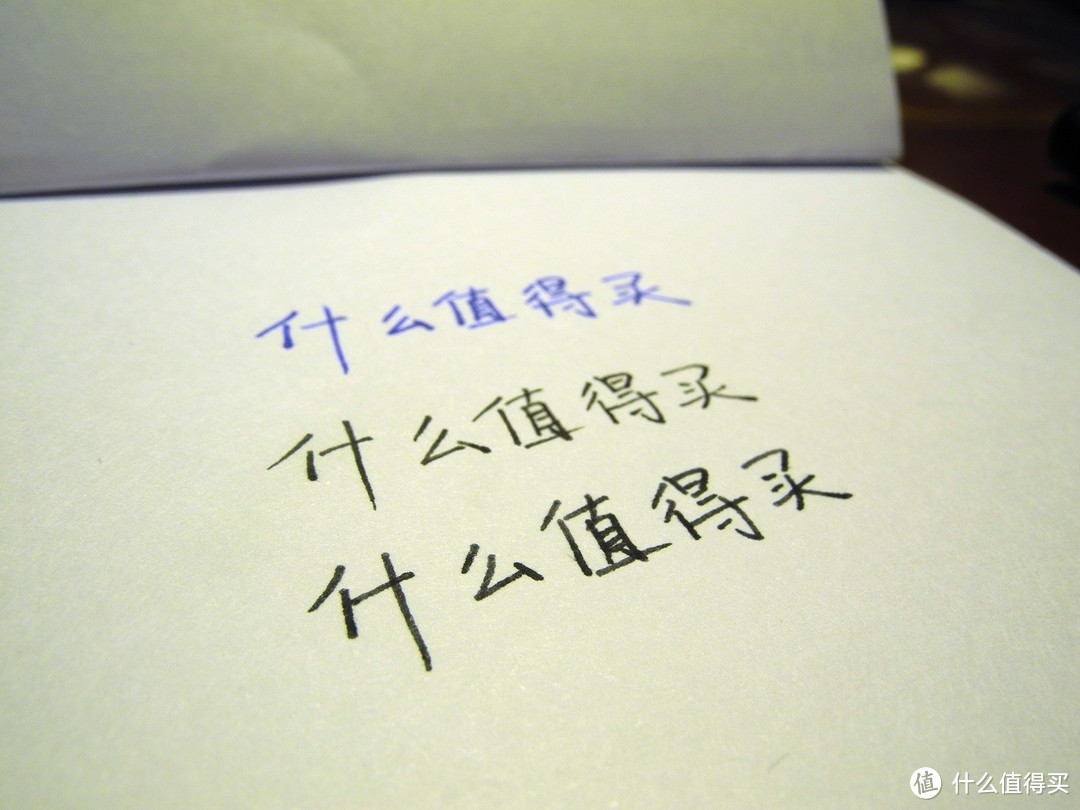 什么值得买
什么值得买
什么值得买
值 什么值得买